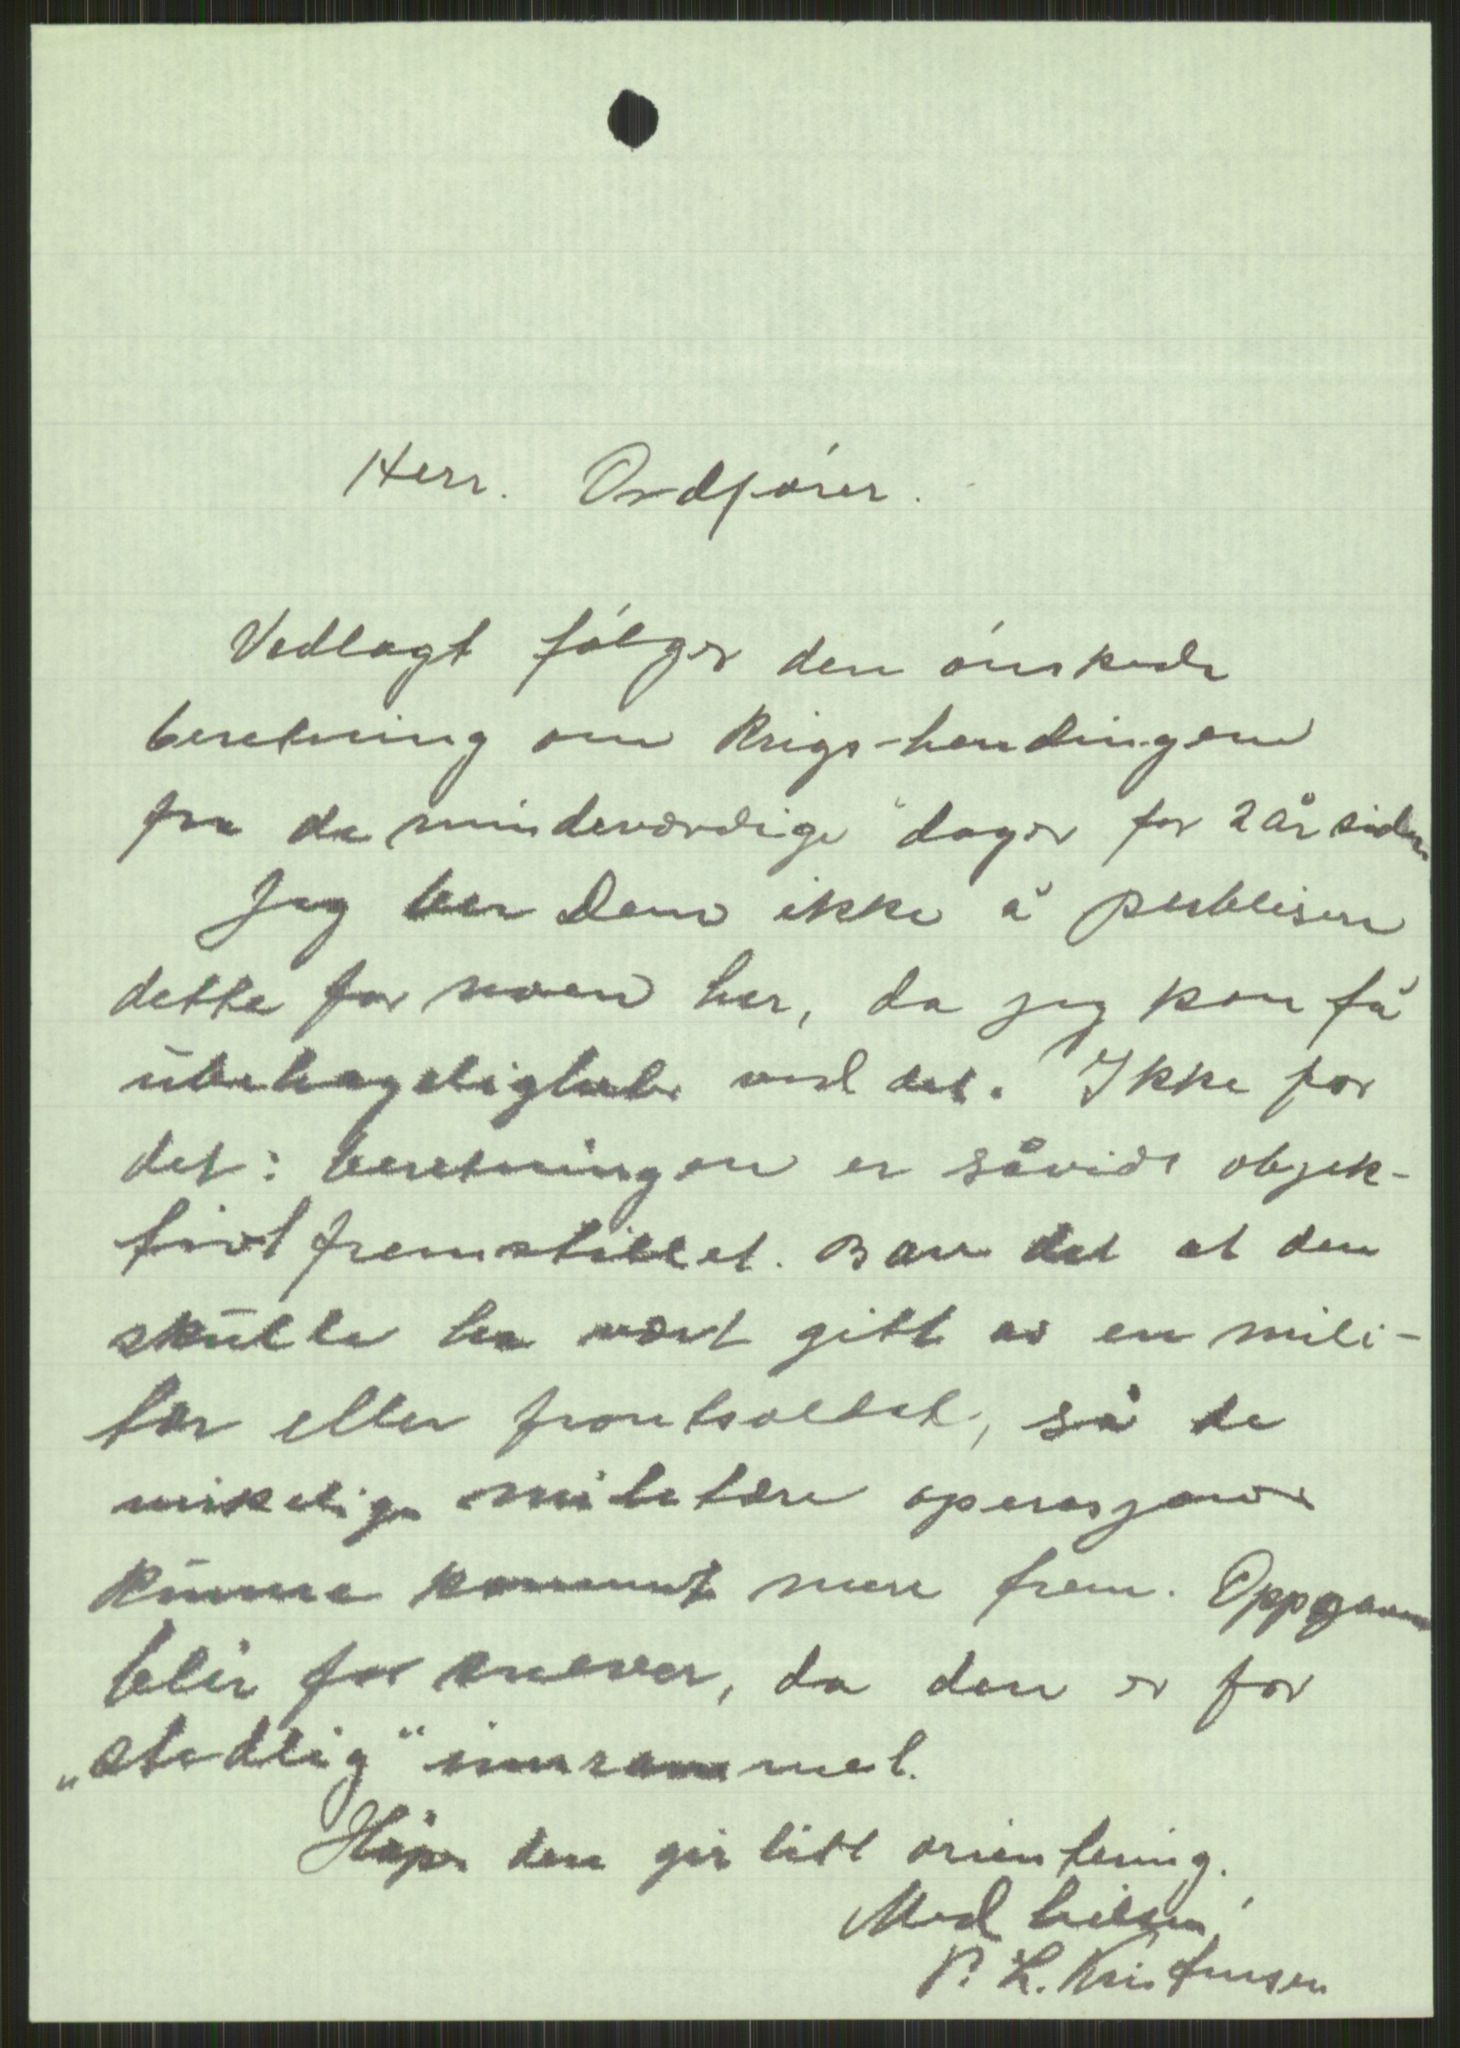 Herr. Ordfører.
Vedlagt følger den ønskede
beretning om krigs-hendingene
fra de mindeværdige dager for 2 år siden.
Jeg ber Dem ikke å publisere
dette for noen her, da jeg kan få
ubehageligheter ved det. Ikke for
det: beretningen er såvidt objek-
tivt fremstillet. Bare det at den
skulle ha vært gitt av en mili-
tær eller frontsoldat, så de
virkelige militære operasjoner
kunne kommet mere frem. Oppgaven
blir for snever, da den er for
„stedlig" innrammet.
Håper den gir litt orientering.
Med hilsen
P. L. Kristensen